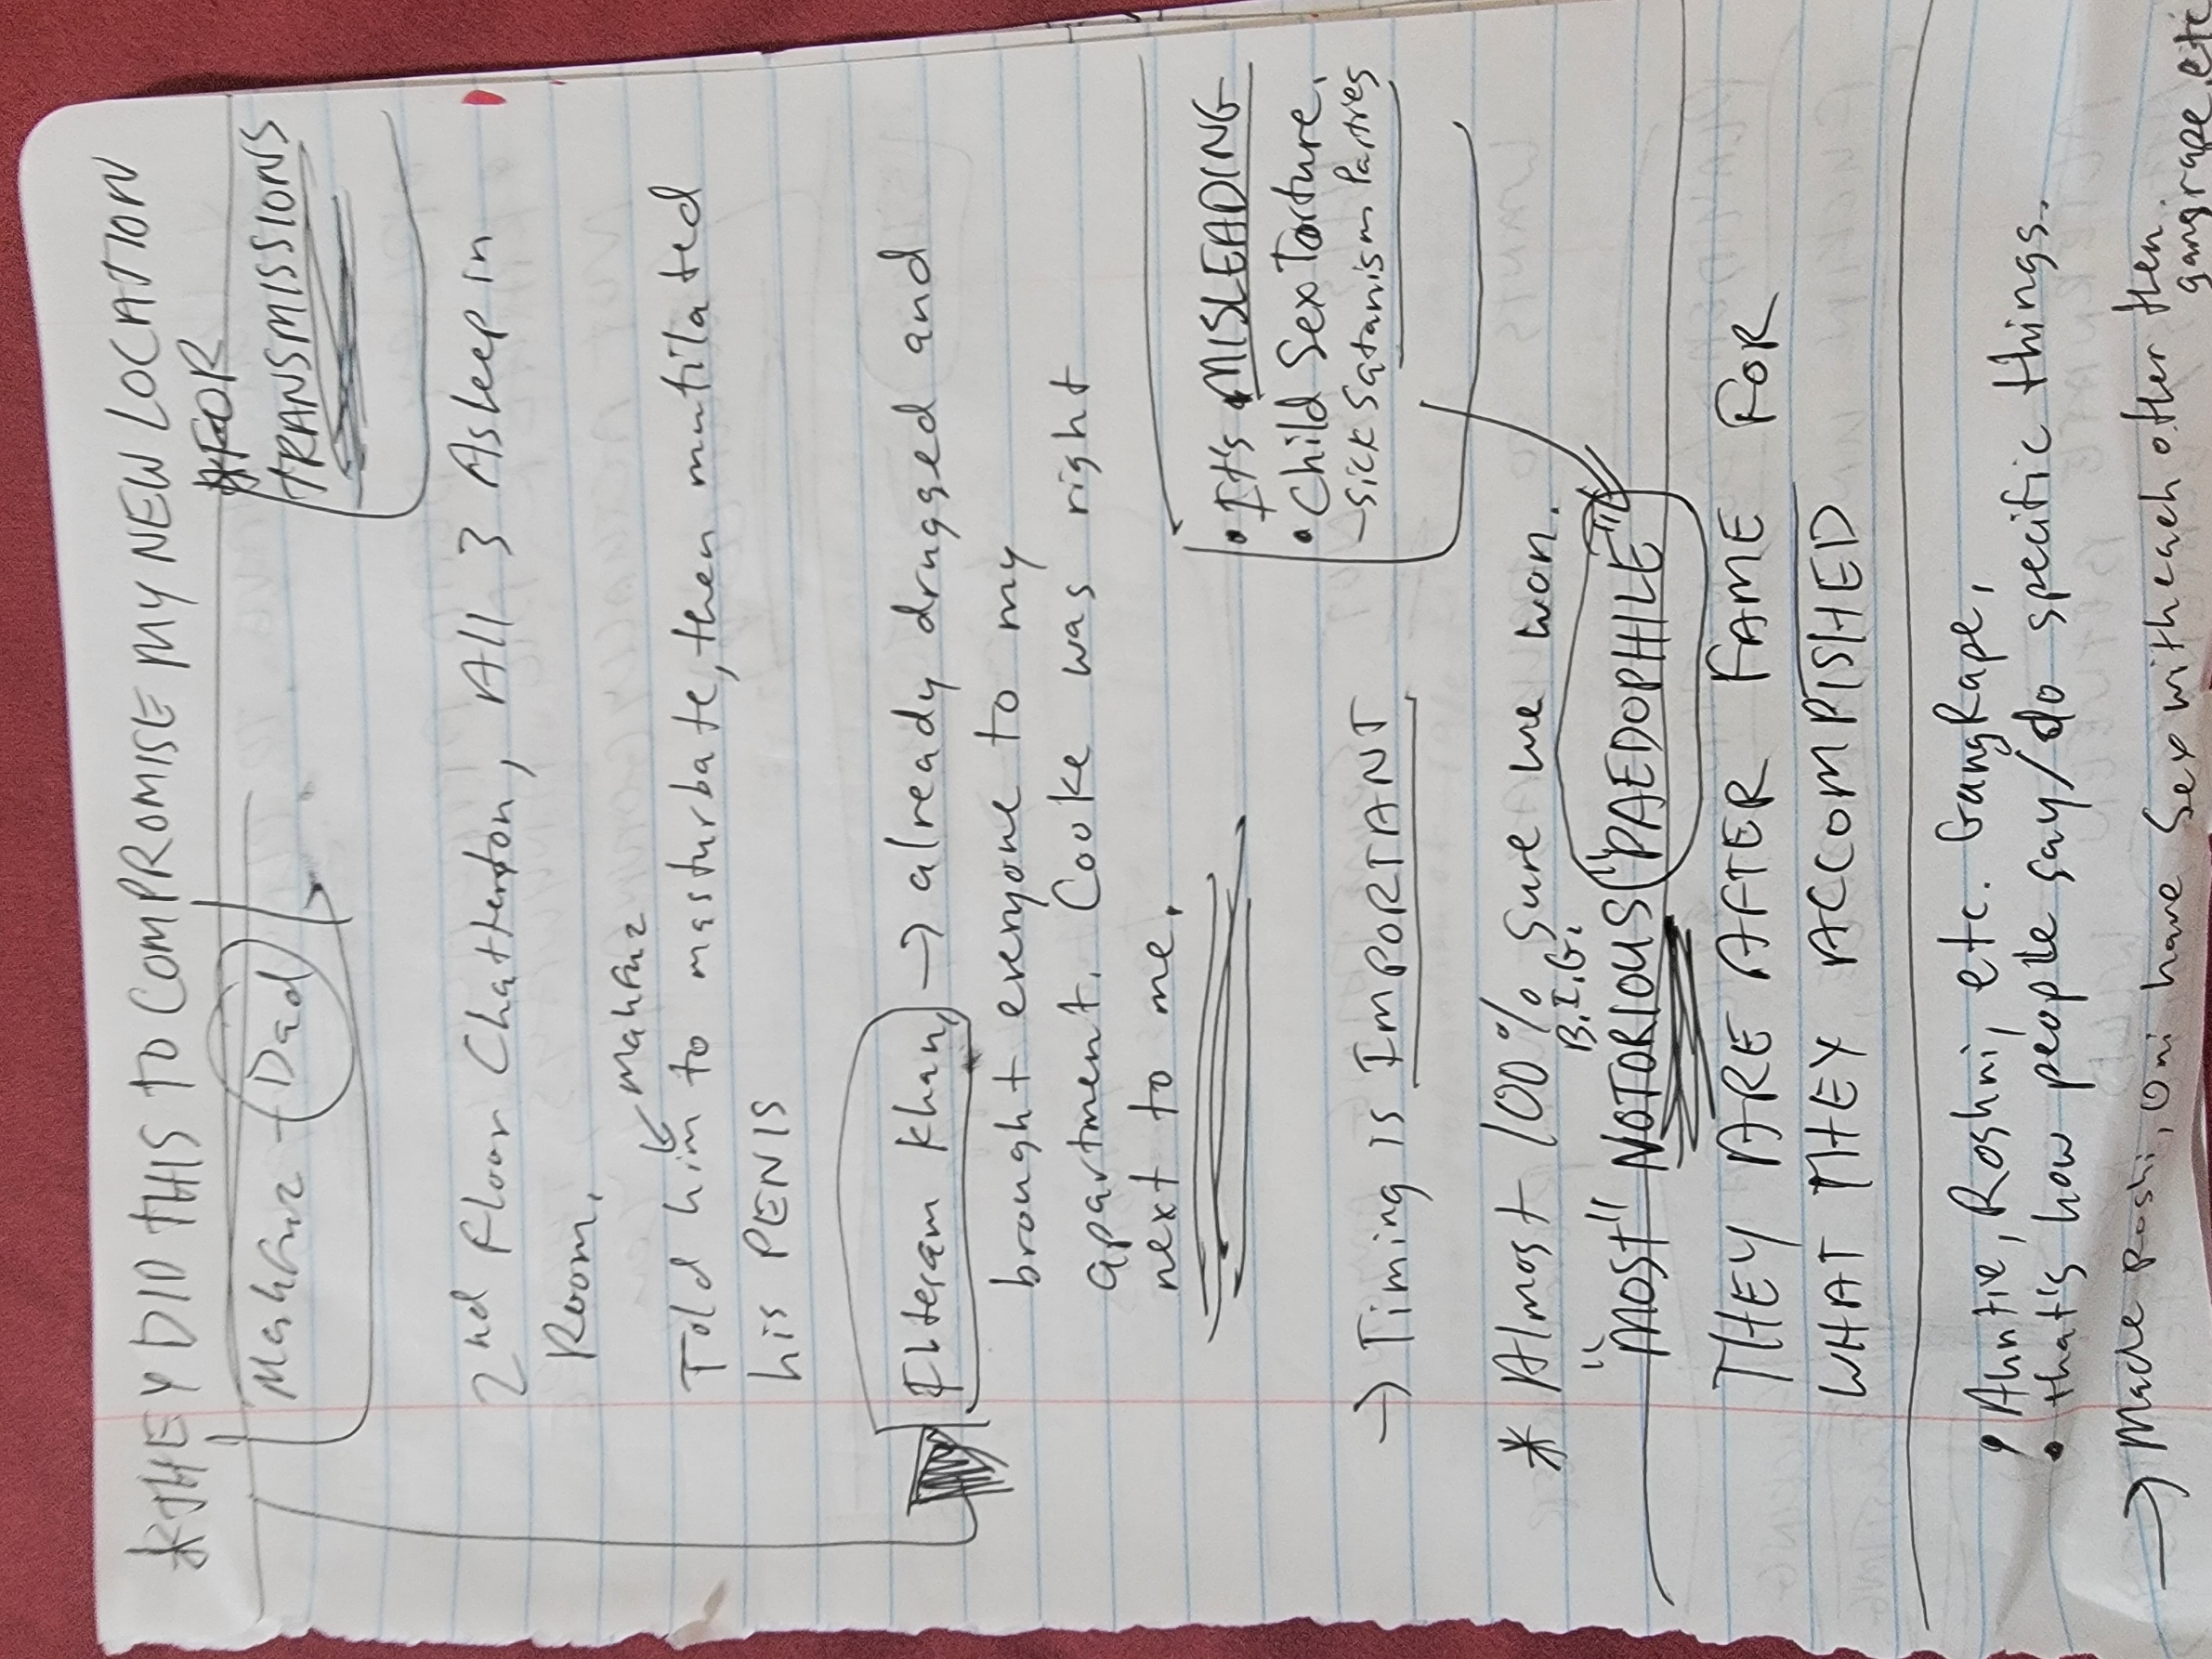 *THEY DID THIS TO COMPROMISE MY NEW LOCATION
*FOR
TRANSMISSIONS
Mahfuz - Dad
2nd Floor Chatterton, All 3 Asleep in
Room.
Mahfuz
Told him to masturbate, then mutilated
his PENIS
Ehtesam Khan, → already drugged and
brought everyone to my
apartment. Cooke was right
next to me.
• It's MISLEADING
• Child Sex Torture.
- Sick Satanism Parties
→ Timing is IMPORTANT
* Almost 100% sure we won.
B.I.G.
"MOST" NOTORIOUS "PAEDOPHILE"
THEY ARE AFTER FAME FOR
WHAT THEY ACCOMPISHED
• Auntie, Roshni, etc. GangRape,
• that's how people say/do specific things.
→ Made Roshi, Oni have Sex with each other then
gangrape, etc